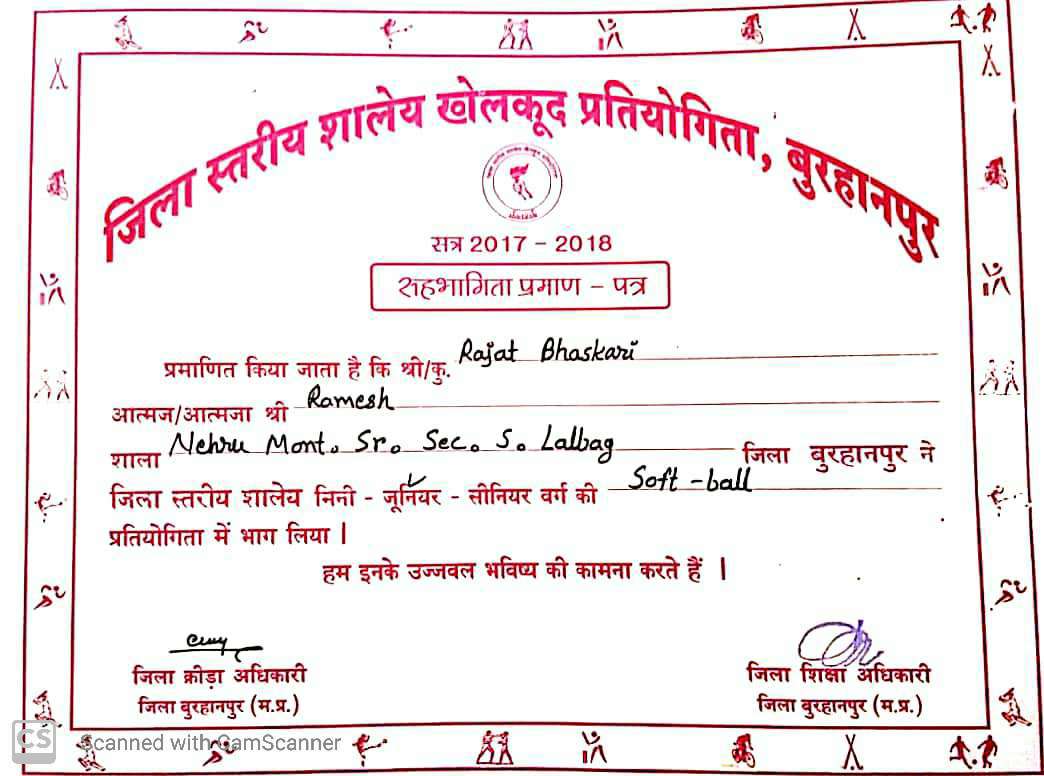 जिला स्तरीय शालेय खेलकूद प्रतियोगिता, बुरहानपुर
सत्र 2017 - 2018
सहभागिता प्रमाण - पत्र
प्रमाणित किया जाता है कि श्री/कु. Rajat Bhaskari
आत्मज/आत्मजा श्री Ramesh
शाला Nehru Mont. Sr. Sec. S. Lalbag जिला बुरहानपुर ने
जिला स्तरीय शालेय मिनी - जूनियर - सीनियर वर्ग की Soft-ball
प्रतियोगिता में भाग लिया |
हम इनके उज्जवल भविष्य की कामना करते हैं |
जिला क्रीड़ा अधिकारी
जिला बुरहानपुर (म.प्र.)
जिला शिक्षा अधिकारी
जिला बुरहानपुर (म.प्र.)
CS Scanned with CamScanner